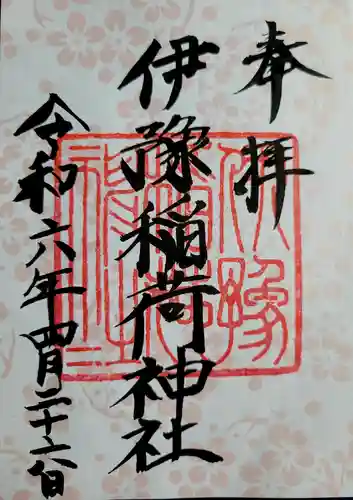 奉拝
伊豫稲荷神社
令和六年四月二十六日